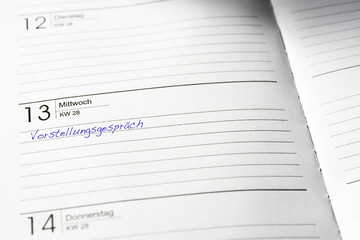 12 Dienstag
KW 28
13 Mittwoch
KW 28
Vorstellungsgespräch
14 Donnerstag
KW 28